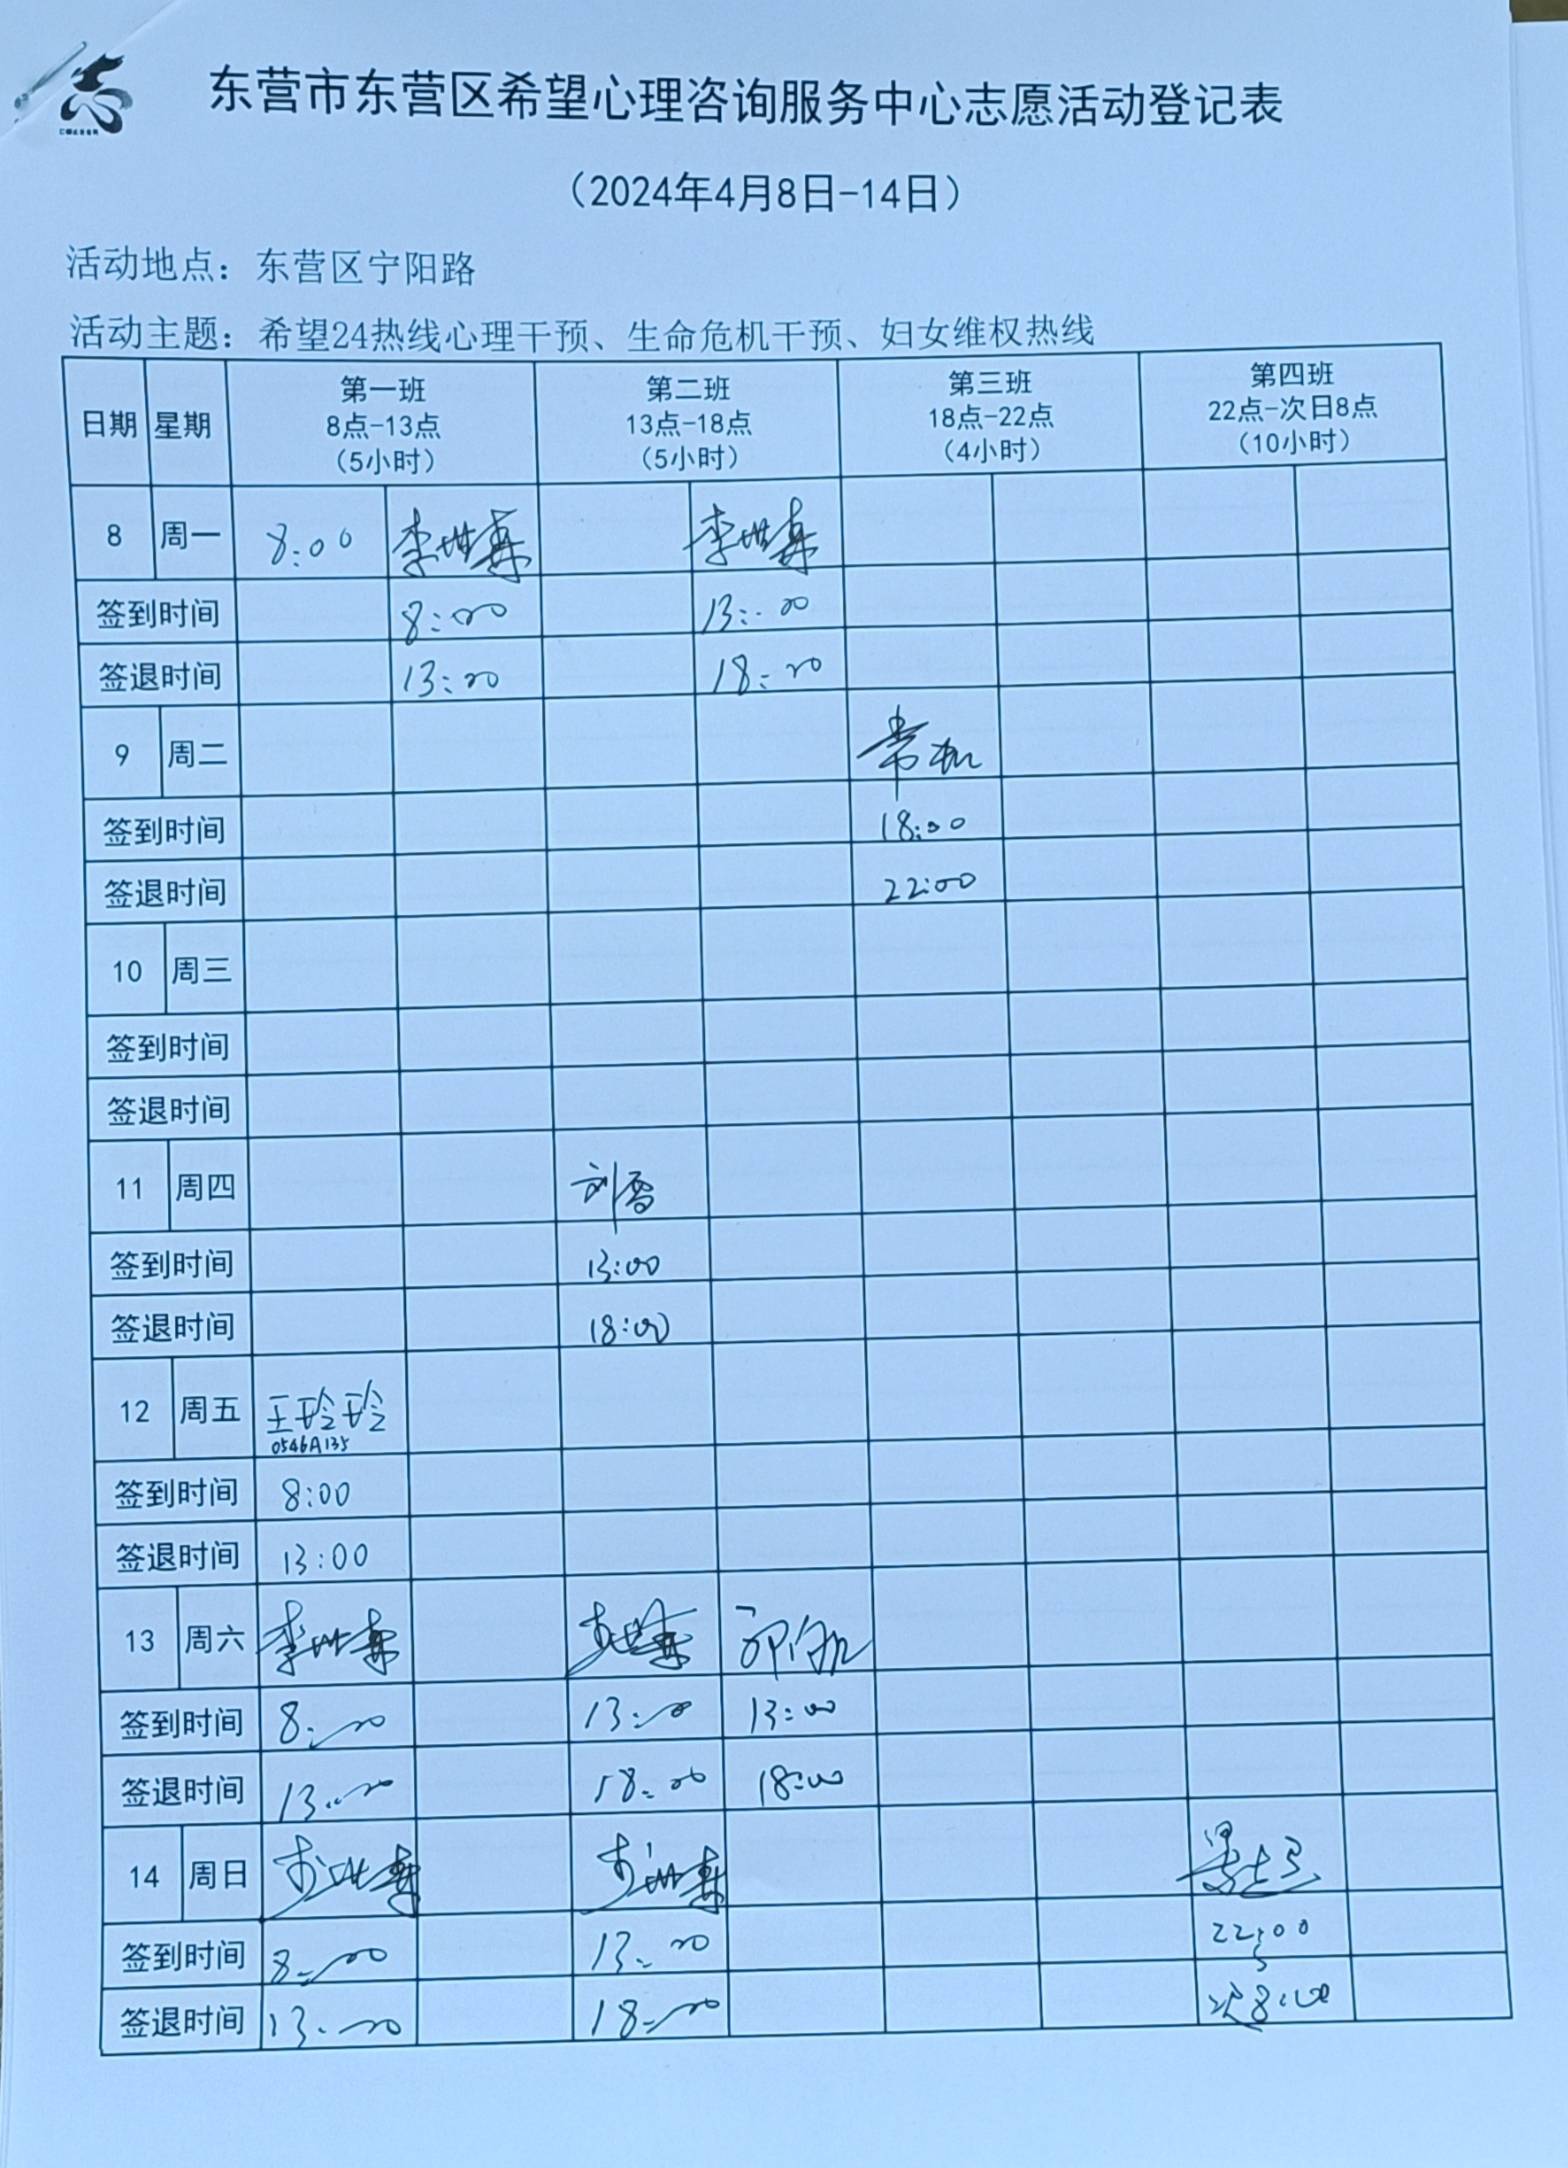 东营市东营区希望心理咨询服务中心志愿活动登记表
（2024年4月8日-14日）
活动地点：东营区宁阳路
活动主题：希望24热线心理干预、生命危机干预、妇女维权热线
日期 星期 第一班 8点-13点 （5小时） 第二班 13点-18点 （5小时） 第三班 18点-22点 （4小时） 第四班 22点-次日8点 （10小时）
8 周一 8:00
签到时间 8:00 13:00
签退时间 13:00 18:00
9 周二
签到时间 18:00
签退时间 22:00
10 周三
签到时间
签退时间
11 周四 刘雪
签到时间 13:00
签退时间 18:00
12 周五 王玲玲
0546A135
签到时间 8:00
签退时间 13:00
13 周六
签到时间 8:00 13:00 13:00
签退时间 13:00 18:00 18:00
14 周日
签到时间 8:00 13:00 22:00
签退时间 13:00 18:00 次8:00